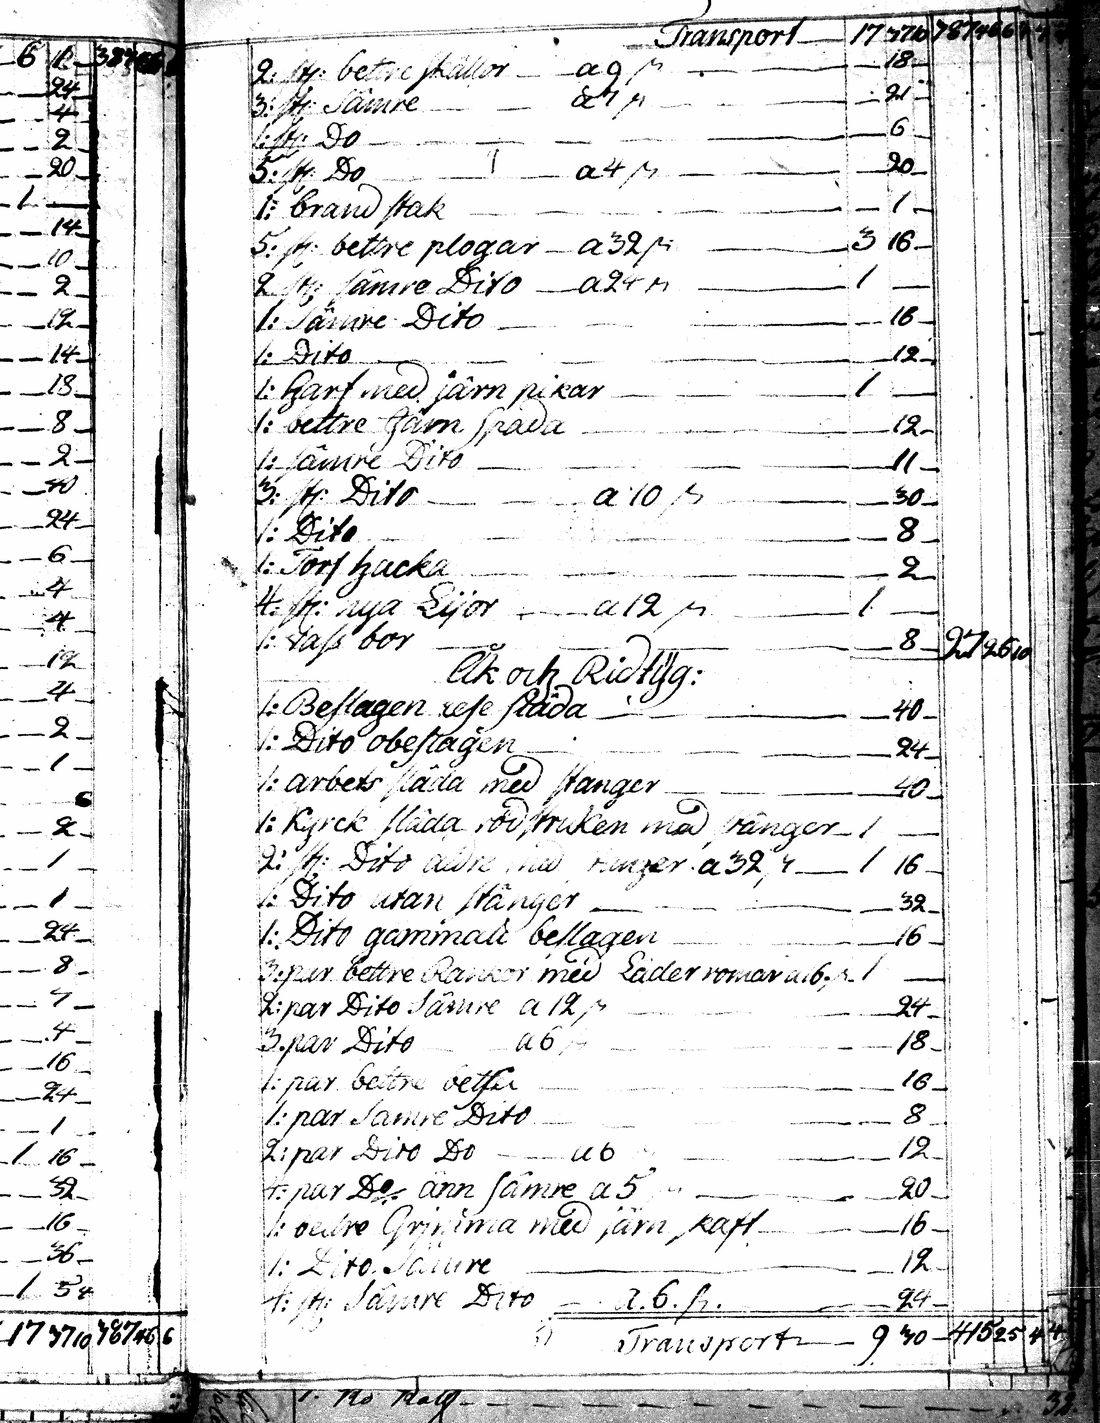 6
24
4
2
20
1
14
10
2
12
14
18
8
2
40
24
6
4
4
12
4
2
1
6
2
1
1
24
8
7
4
16
24
1
1 16
32
16
36
1 5
17 37 10 387 46 6
Transport 17 37 10 387 46 6
2: st: bettre skållor a 9 18
3: st: sämre a 7 21
1: st: Do 6
5: st: Do a 4 20
1: brand stak 1
5: st: bettre plogar a 32 3 16
2 st: sämre Dito a 24 1
1: Sämre Dito 16
1: Dito 12
1: Harf med järn pikar 1
1: bettre Järn spada 12
1: sämre Dito 11
3: st: Dito a 10 30
1: Dito 8
1: Torf hacka 2
4: st: nya Lijor a 12 1
1: bor 8 27 26 10
Åk och Ridtyg:
1: Beslagen rese släda 40
1: Dito obeslagen 24
1: arbets släda med stänger 40
1: Kyrck släda rödstruken med stänger 1
2: st: Dito a 32 1 16
1: Dito utan stänger 32
1: Dito gammall beslagen 16
3: par bettre Rankor med Läder romar 1
2: par Dito Sämre a 12 24
3. par Dito a 6 18
1: par bettre 16
1: par Sämre Dito 8
2: par Dito Do a 6 12
4: par Do änn sämre a 5 20
1: med järn skaft 16
1: Dito Sämre 12
4: st: Sämre Dito a. 6. 24
Transport 9 30 415 25 4